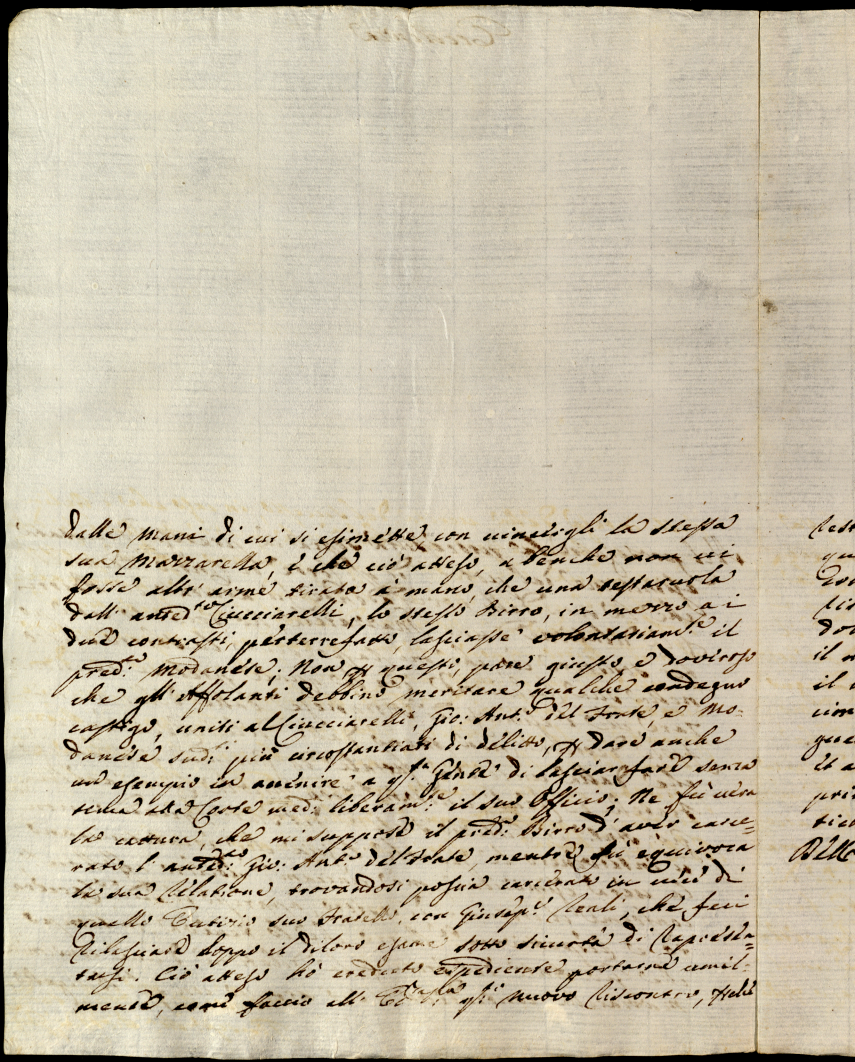 dalle mani di cui si esimette, con vincergli la stessa
sua Mazzarella, e che ciò atteso, a benche non vi
fosse altr' arme tirata à mano, che una
dall' anted.to Ciucciarelli, lo stesso Birro, in mezzo a i
due contrasti, perterrefatto, lasciasse volontariam.te il
pred.to Modanese; Non questi, pare giusto, e doveroso
che gl' Affolanti debbino meritare qualche condegno
castigo, uniti al Ciucciarelli, Gio: Ant.o del Frate, e Mo-
danese sud.i più circostantiati di delitto, dare anche
un esempio in avvenire a Gente di lasciar fare senza
tema alla Corte med.a liberam.te il suo Officio; Ne fù vera
la cattura, che mi suppose il pred.o Birro d' aver carce=
rato l' anted.to Gio: Ant.o del Frate, mentre fù equivoca
la sua Relatione, trovandosi poscia carcerato in vece di
quello suo Fratello, con Giusep.e Reali, che feci
rilasciare doppo il diloro esame sotto sicurtà di rapresen=
tarsi. Ciò atteso hò creduto espediente portarne umil-
mente, come faccio all' nuovo riscontro,